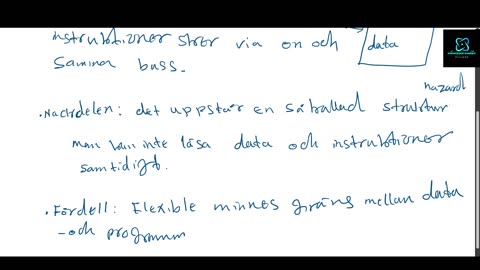 instruktioner sker via en och
samma buss.
data
hazard
• Nackdelen: det uppstår en så kallad struktur
man kan inte läsa data och instruktioner
samtidigt.
• Fördell: Flexible minnes gräns mellan data
- och programm